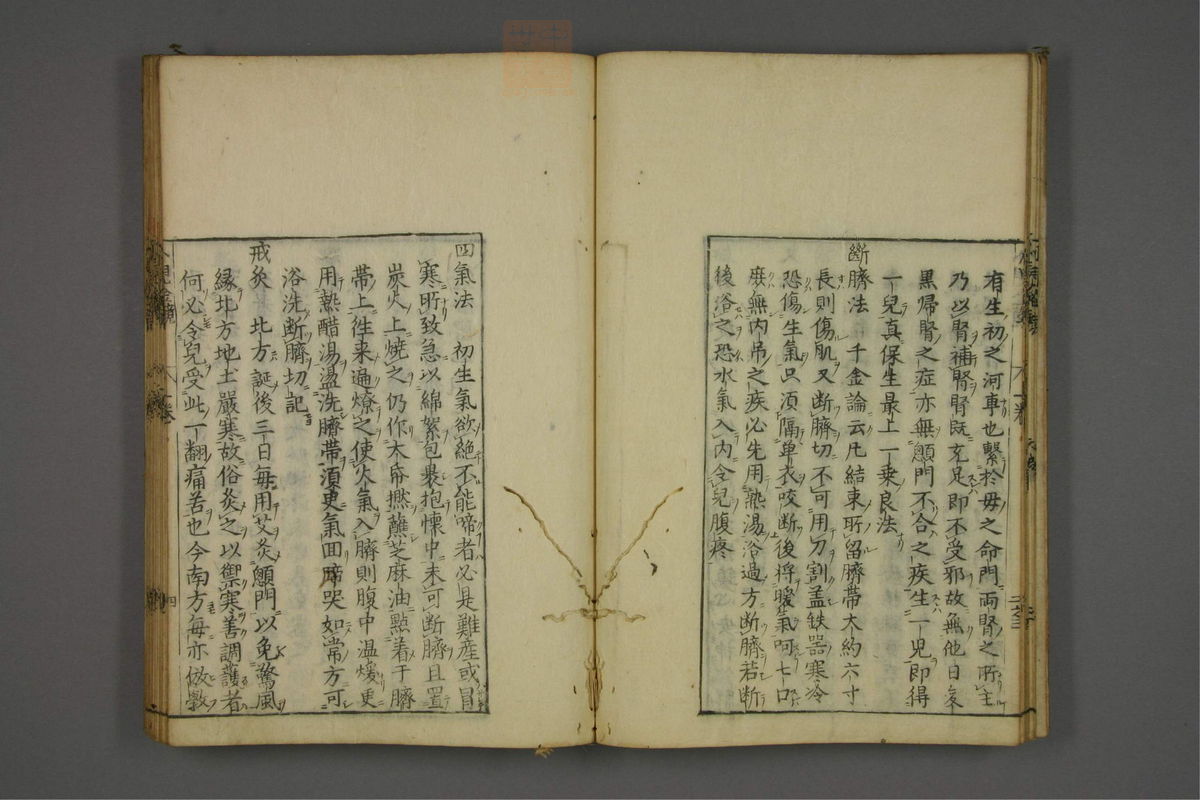 有生初之河車也繫於母之命門兩腎之所主
乃以腎補腎腎既充足即不受邪故無他日変
黒帰腎之症亦無顖門不合之疾生一児即得
一兒真保生最上一乗良法
斷臍法 千金論云凡結束所留臍帯大約六寸
長則傷肌又断臍切不可用刀割盖鉄器寒冷
恐傷生氣只須隔単衣咬断後将暖氣呵七口
庶無内吊之疾必先用熱湯浴過方断臍若断
後浴之恐水氣入内令兒腹疼
回氣法 初生氣欲絶不能啼者必是難産或冒
寒所致急以綿絮包裹抱懐中未可断臍且置
炭火上焼之仍作大帋撚蘸芝麻油點着于臍
帯上徃来遍燎之使火氣入臍則腹中温煖更
用熱醋湯盪洗臍帯須臾氣回啼哭如常方可
浴洗断臍切記
戒灸 北方誕後三日毎用艾灸顖門以免驚風
縁北方地土嚴寒故俗灸之以禦寒善調護者
何必令兒受此一翻痛苦也今南方毎亦倣斅